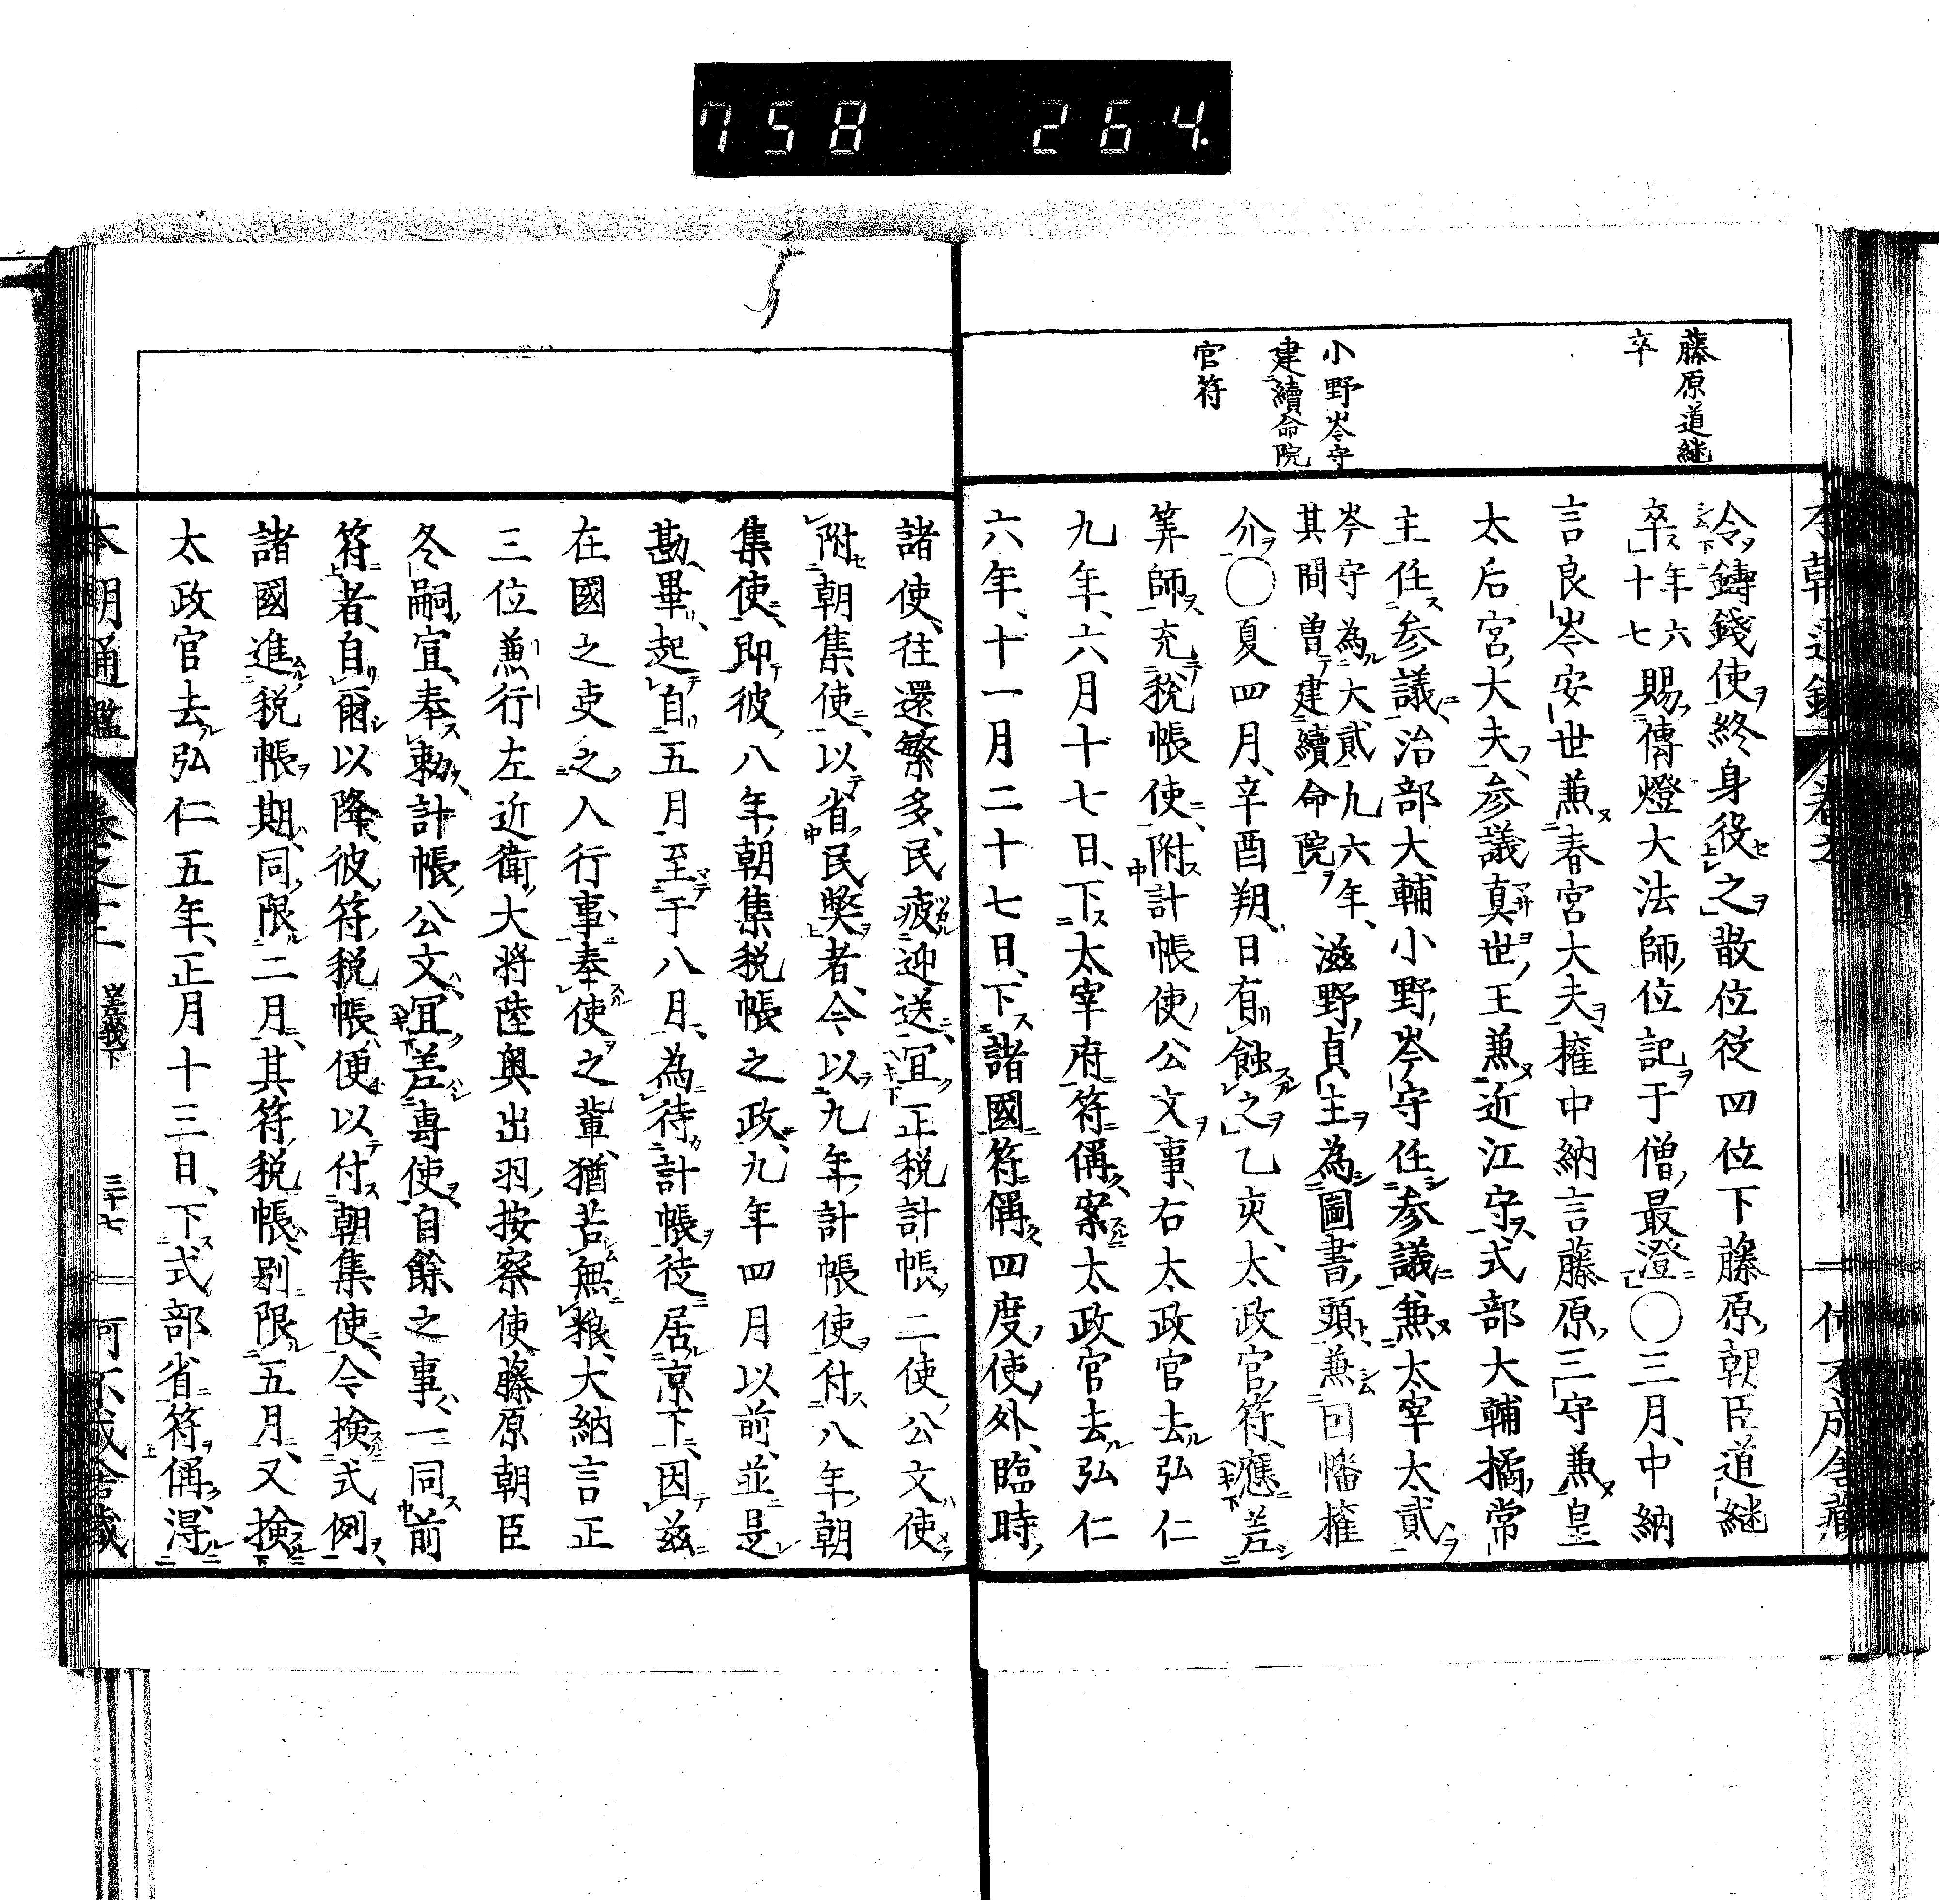 758 264.
藤原道継
卒
小野岑守
建續命院
官符
令鑄錢使終身役之散位従四位下藤原朝臣道継
卒年六十七賜傳燈大法師位記于僧最澄〇三月中納
言良岑安世兼春宮大夫権中納言藤原三守兼皇
太后宮大夫参議真世王兼近江守式部大輔橘常
主任参議治部大輔小野岑守任参議兼太宰太貳
岑守為大貳九六年
其間曽建續命院
滋野貞主為圖書頭兼因幡権
介〇夏四月辛酉朔日有蝕之乙亥太政官符應差
筭師充税帳使附計帳使公文事右太政官去弘仁
九年六月十七日下太宰府符偁案太政官去弘仁
六年十一月二十七日下諸國符偁四度使外臨時
諸使往還繁多民疲迎送宜正税計帳二使公文使
附朝集使以省民弊者今以九年計帳使付八年朝
集使即彼八年朝集税帳之政九年四月以前並是
勘畢起自五月至于八月為待計帳徒居京下因茲
在國之吏之人行事奉使之輩猶苦無粮大納言正
三位兼行左近衛大将陸奥出羽按察使藤原朝臣
冬嗣宣奉勅計帳公文宜差專使自餘之事一同前
符者自爾以降彼符税帳便以付朝集使今検式例
諸國進税帳期同限二月其符税帳別限五月又検
太政官去弘仁五年正月十三日下式部省符偁得
本朝通鑑
嵯峨下
三十七
何不成舎藏